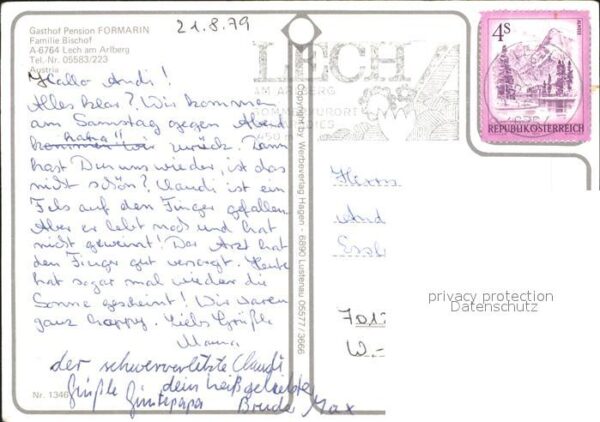 Gasthof Pension FORMARIN
Familie Bischof
A-6764 Lech am Arlberg
Tel.-Nr. 05583/223
Austria
21.8.79
Hallo Andi!
Alles klar? Wir kommen
am Samstag gegen Abend
haha!!
kommen wir zurück. Dann
hast Du uns wieder, ist das
nicht schön? Claudi ist ein
Fels auf den Finger gefallen.
Aber er lebt noch und hat
nicht geweint! Der Arzt hat
den Finger gut versorgt. Heute
hat sogar mal wieder die
Sonne gescheint! Wir waren
ganz happy. Liebe Grüßle
Mama
der schwerverletzte Claudi
Grüßle dein heißgeliebter
Bruder Max
Nr. 1346
Copyright by Werbeverlag Hagen - 6890 Lustenau 05577/3666
LECH
AM ARLBERG
4S
REPUBLIK ÖSTERREICH
Herrn
And
Essl
701
W.-
privacy protection
Datenschutz